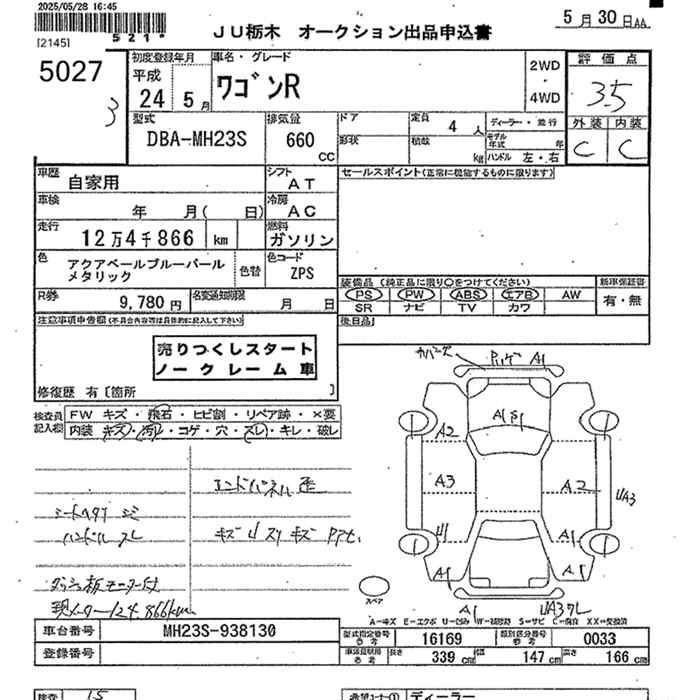 2025/05/28 16:45
[2145]
521*
JU栃木 オークション出品申込書
5月30日AA
5027
3
初度登録年月
平成
24 5月
車名・グレード
ワゴンR
2WD
・
4WD
評価点
3.5
外装 内装
C C
型式
DBA-MH23S
排気量
660 CC
ドア
形状
定員 4人
積載 kg
ディーラー・並行
モデル年式 年
ハンドル 左・右
車歴
自家用
シフト
AT
セールスポイント(正常に機能するものに限ります)
車検
年 月( 日)
冷房
AC
走行
12万4千866 km
燃料
ガソリン
色
アクアベールブルーパール
メタリック
色替
色コード
ZPS
装備品 (純正品に限り○をつけてください)
PS PW ABS エアB AW
SR ナビ TV カワ
新車保証書
有・無
R券
9,780円
名変通知期限
月 日
後日品
注意事項申告欄(不具合内容等は具体的に記入して下さい)
売りつくしスタート
ノークレーム車
修復歴 有[箇所 ]
検査員
記入欄
FW キズ・飛石・ヒビ割・リペア跡・×要
内装 キズ・汚れ・コゲ・穴・スレ・キレ・破レ
エンドパネル 歪
ハンドル スレ
現メーター124,866km
A1
A2
A3
A2
UA3
U1
A1
A1
A1
スペア
A-キズ E-エクボ U-凹み W-補修跡 S-サビ C-腐食 XX-交換済
車台番号 MH23S-938130
登録番号
型式指定番号
参考
16169
類別区分番号
参考
0033
長さ 339 cm 幅 147 cm 高さ 166 cm
検査 15
希望コーナー① ディーラー